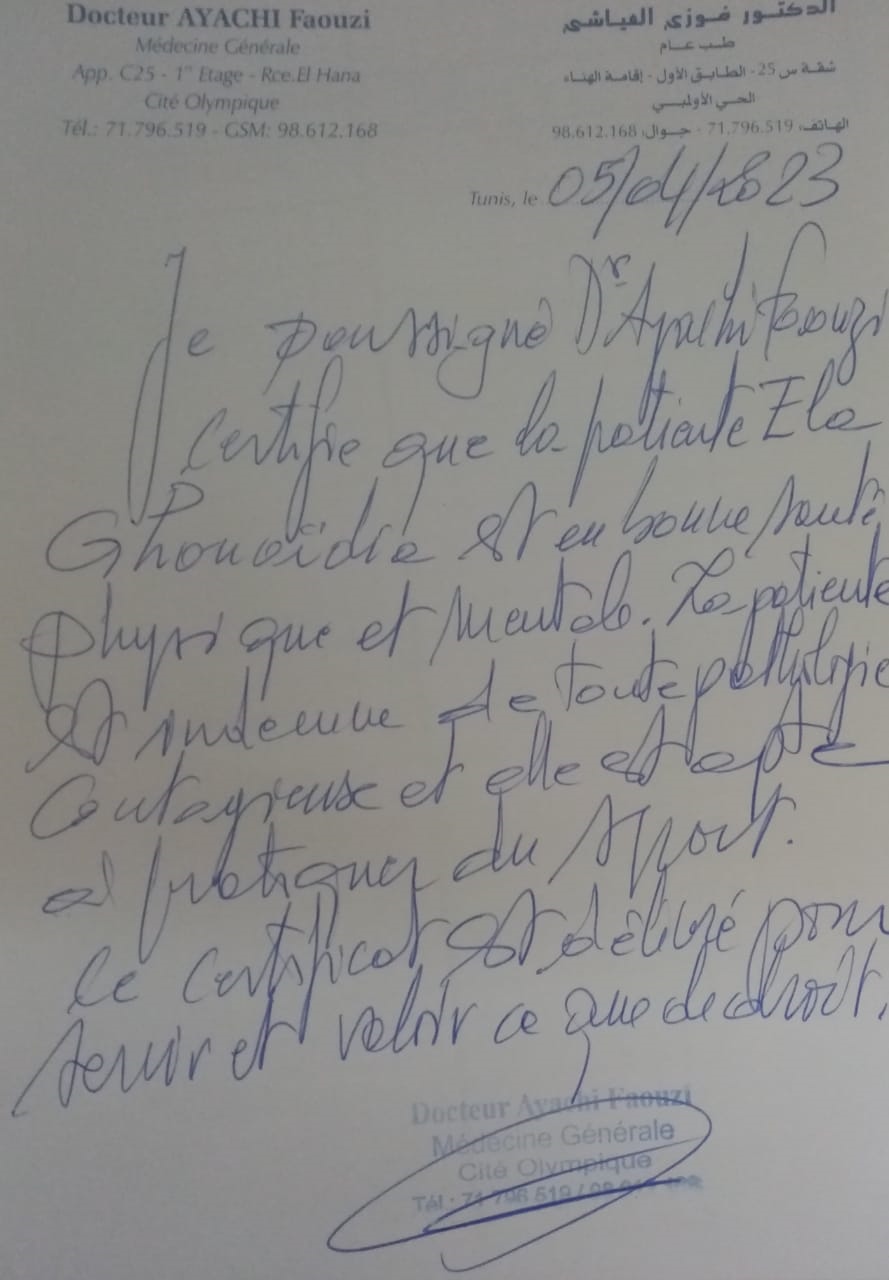 Docteur AYACHI Faouzi
Médecine Générale
App. C25 - 1er Etage - Rce.El Hana
Cité Olympique
Tél.: 71.796.519 - GSM: 98.612.168
الدكتور فوزي العياشي
طب عام
شقة س 25- الطابق الأول - إقامة الهناء
الحي الأولمبي
الهاتف: 71.796.519 - جوال: 98.612.168
Tunis, le 05/04/2023
Je soussigné Dr Ayachi Faouzi
certifie que la patiente Ela
Ghouaïdia est en bonne santé
physique et mentale. La patiente
est indemne de toute pathologie
contagieuse et elle est apte
à pratiquer du sport.
Ce certificat est délivré pour
servir et valoir ce que de droit.
Docteur Ayachi Faouzi
Médecine Générale
Cité Olympique
Tél : 71 796 519 /